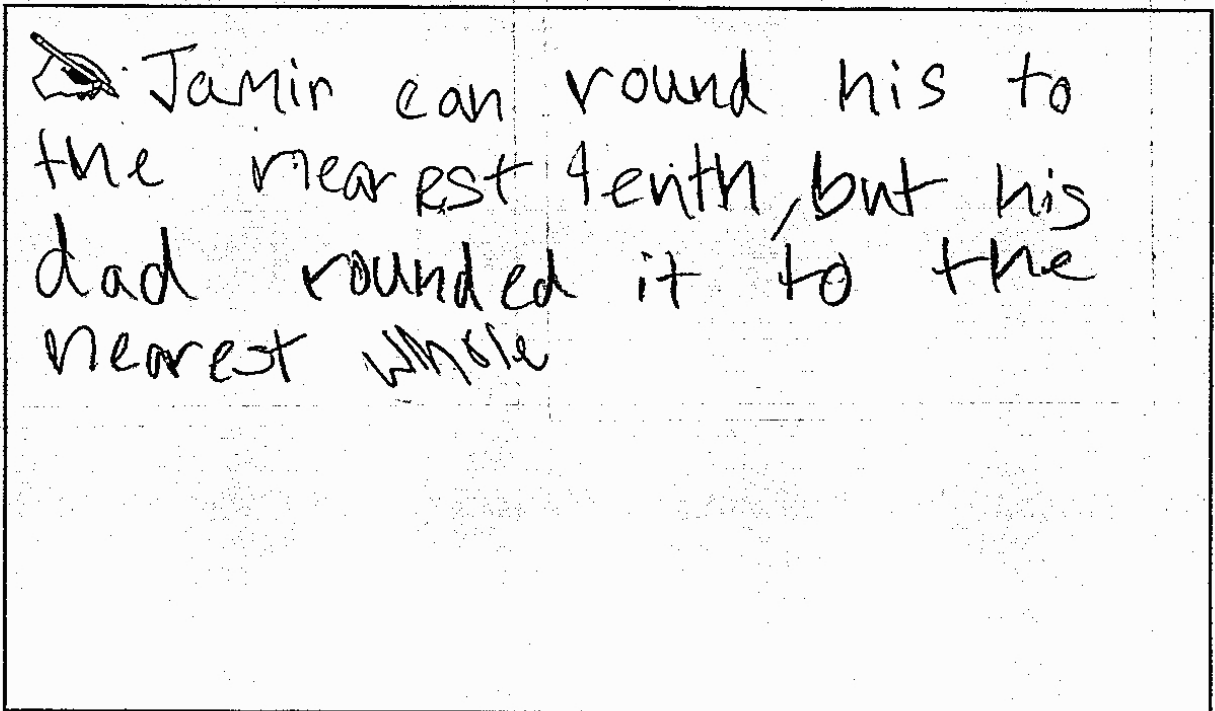 Jamir can round his to
the nearest tenth, but his
dad rounded it to the
nearest whole